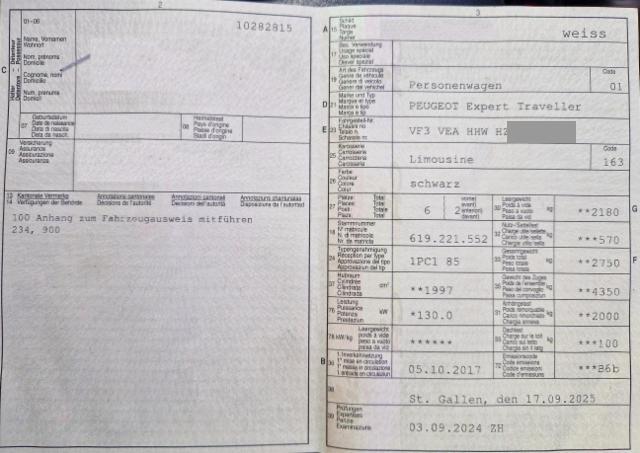 2
01-06
10282815
C
Name, Vornamen
Wohnort
Nom, prénoms
Domicile
Cognome, nomi
Domicilio
Num, prenums
Domicil
07
Geburtsdatum
Date de naissance
Data di nascita
Data da nasch.
08
Heimatstaat
Pays d'origine
Paese d'origine
Stadi d'origin
09
Versicherung
Assurance
Assicurazione
Assicuranza
13
14
Kantonale Vermerke
Verfügungen der Behörde
Annotations cantonales
Décisions de l'autorité
Annotazioni cantonali
Decisioni dell'autorità
Annotaziuns chantunalas
Disposiziuns da l'autoritad
100 Anhang zum Fahrzeugausweis mitführen
234, 900
3
A
15
Schild
Plaque
Targa
Numer
weiss
17
Bes. Verwendung
Usage spécial
Uso speciale
Diever spezial
19
Art des Fahrzeugs
Genre de véhicule
Genere di veicolo
Personenwagen
Code
01
D
21
Marke und Typ
Marque et type
Marca e tipo
Marca e tip
PEUGEOT Expert Traveller
E
23
Fahrgestell-Nr.
Châssis no
Telaio n.
VF3 VEA HHW H
25
Karosserie
Carrosserie
Carrozzeria
Limousine
Code
163
26
Farbe
Couleur
Colore
Colur
schwarz
27
Plätze: Total
Places: Total
Posti: Totale
Plazs: Total
6
2
vorne)
avant)
anteriori)
davant)
30
Leergewicht
Poids à vide
Peso a vuoto
Paisa da vid
kg
**2180
G
18
Stammnummer
N° matricule
N. di matricola
Nr. da matricla
619.221.552
32
Nutz-/Sattellast
kg
***570
24
Typengenehmigung
Réception par type
Approvazione del tipo
Approvaziun dal tip
1PC1 85
33
Gesamtgewicht
Poids total
Peso totale
Paisa totala
kg
**2750
F
37
Hubraum
Cylindrée
Cilindrata
cm³
**1997
35
Gewicht des Zuges
Poids de l'ensemble
kg
**4350
76
Leistung
Puissance
Potenza
Prestaziun
kW
*130.0
31
Anhängelast
Poids remorquable
kg
**2000
78
kW/kg
Leergewicht
poids à vide
peso a vuoto
paisa da vid
******
55
Dachlast
Charge sur le toit
kg
***100
B
36
1. Inverkehrsetzung
1re mise en circulation
1a messa in circolazione
05.10.2017
72
Emissionscode
Code émissions
Codice emissioni
Code d'emissiuns
***B6b
38
St. Gallen, den 17.09.2025
39
Prüfungen
Expertises
Perizie
Examinaziuns
03.09.2024 ZH